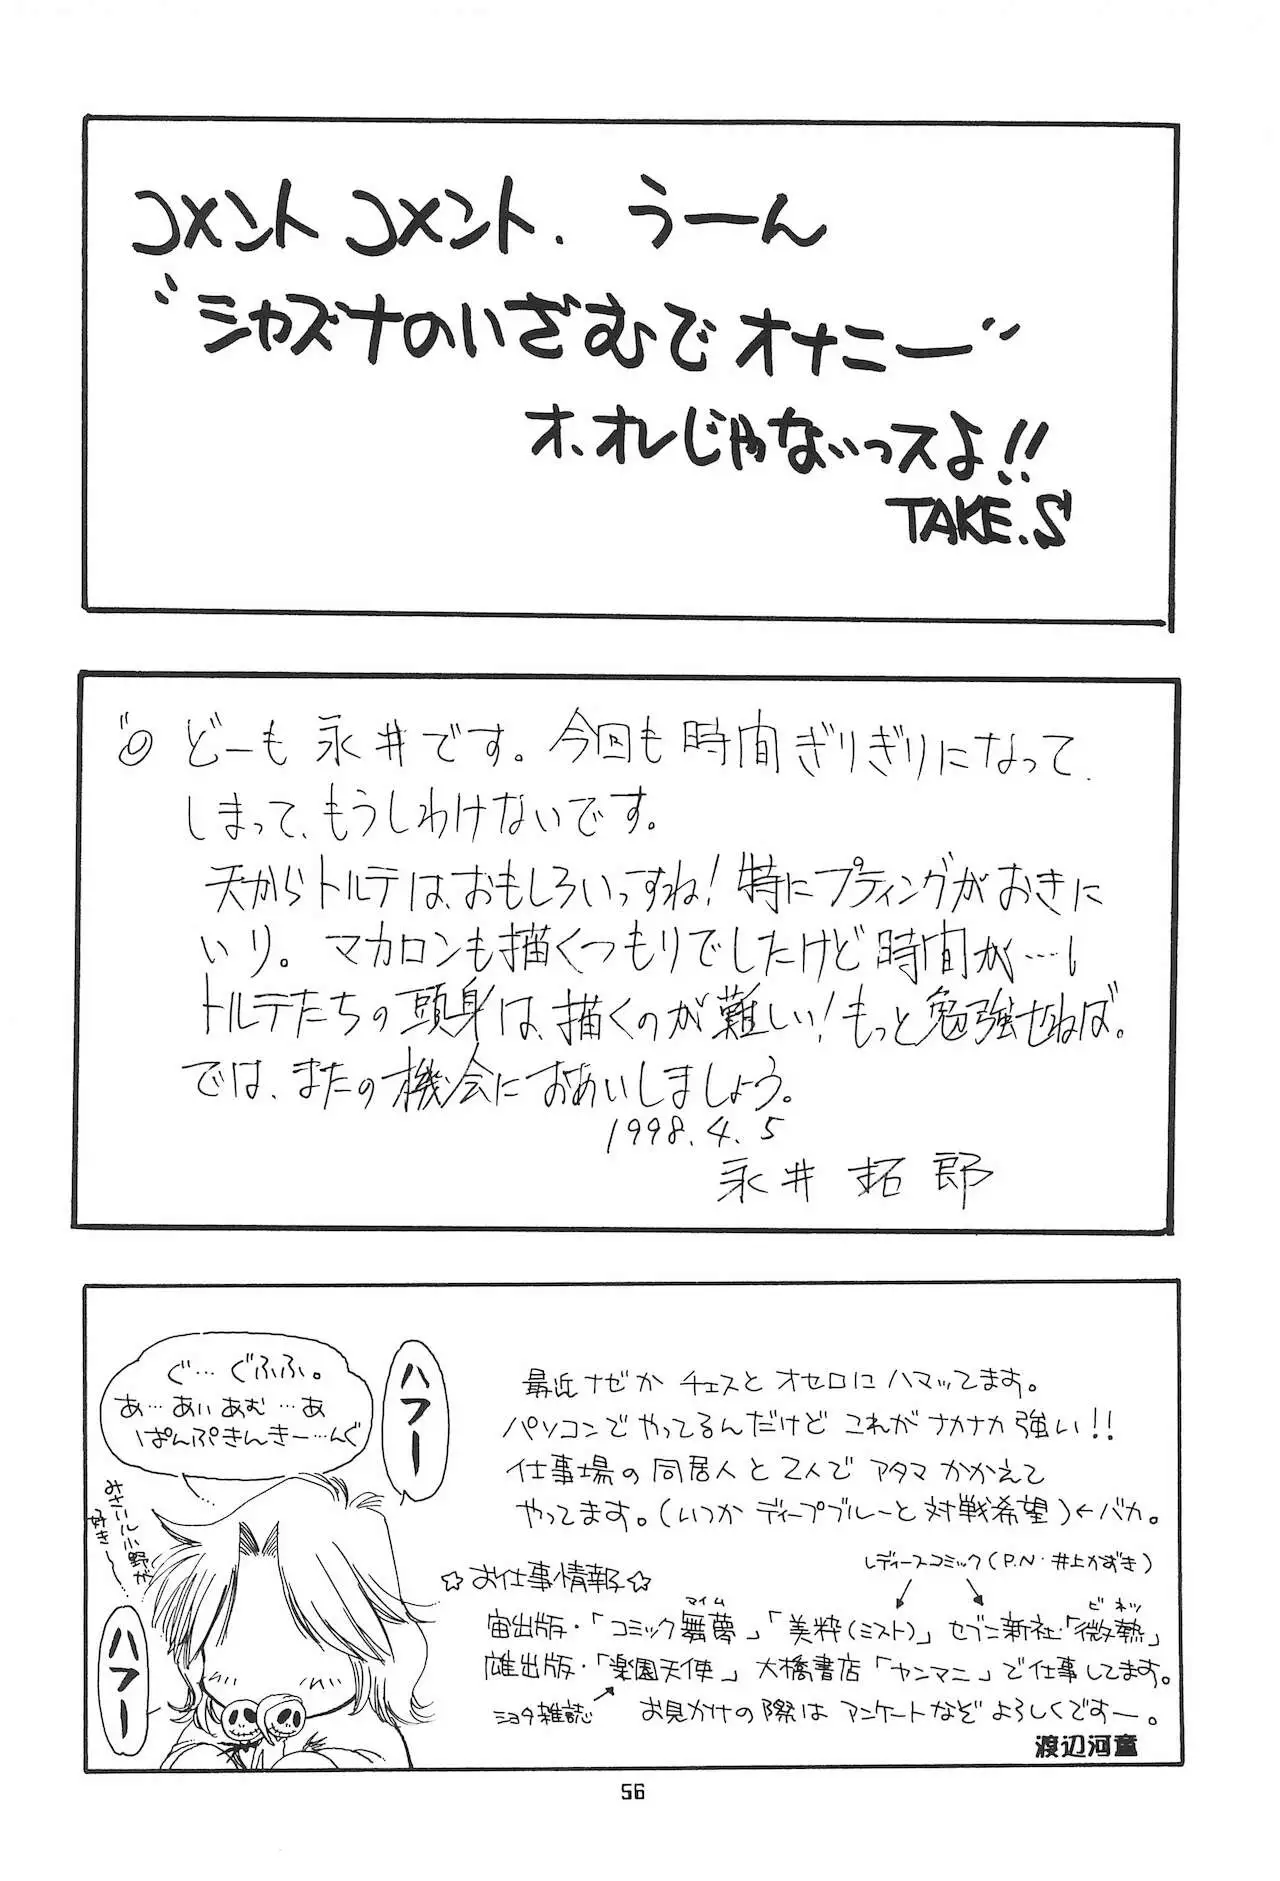 コメント コメント、うーん
"シャズナのいざむでオナニー"
オ、オレじゃないっスよ!!
TAKE.S
どーも永井です。今回も時間ぎりぎりになって
しまって、もうしわけないです。
天からトルテは、おもしろいっすね!特にプディングがおきに
いり。マカロンも描くつもりでしたけど時間が…。
トルテたちの頭身は、描くのが難しい!もっと勉強せねば。
では、またの機会におあいしましょう。
1998.4.5
永井拓郎
ぐ…ぐふふ。
あ…あいあむ…あ
ぱんぷきんきー…んぐ
ハフー
みさいル小野が
好き〜
ハフー
最近ナゼか チェスと オセロに ハマッてます。
パソコンでやってるんだけど これがナカナカ強い!!
仕事場の同居人と2人で アタマ かかえて
やってます。(いつか ディープブルーと対戦希望)←バカ。
レディースコミック(P.N・井上かずき)
☆お仕事情報☆
マイム
ビネツ
宙出版・「コミック舞夢」「美粋(ミスト)」セブン新社・「微熱」
雄出版・「楽園天使」大橋書店「ヤンマニ」で仕事してます。
ショタ雑誌
お見かけの際は アンケートなぞ よろしくですー。
渡辺河童
56